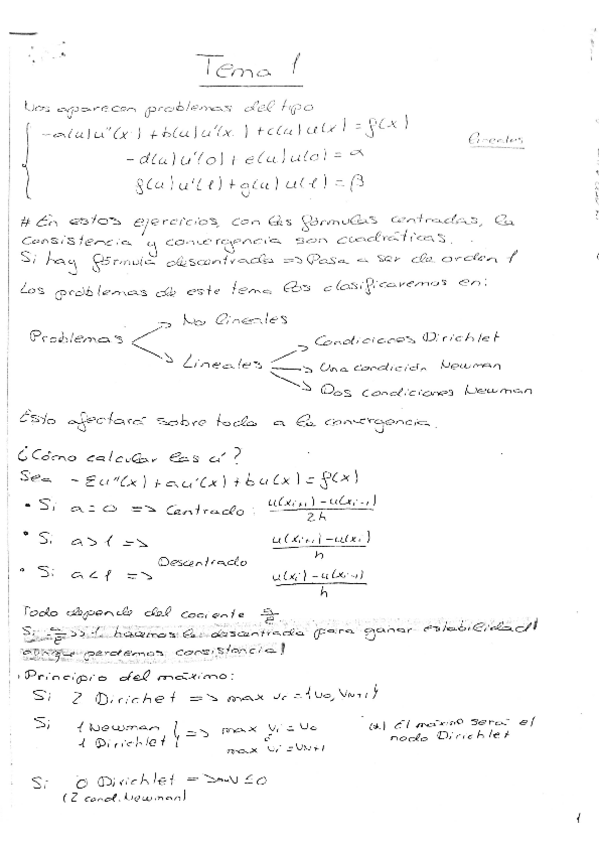 Tema 1
Nos aparecen problemas del tipo
-a(u)u''(x) + b(u)u'(x) + c(u)u(x) = f(x)
-d(u)u'(0) + e(u)u(0) = α
f(u)u'(l) + g(u)u(l) = β
Lineales
# En estos ejercicios, con las fórmulas centradas, la
consistencia y convergencia son cuadráticas.
Si hay fórmula descentrada => Pasa a ser de orden 1
Los problemas de este tema los clasificaremos en:
Problemas
No lineales
Lineales
Condiciones Dirichlet
Una condición Newman
Dos condiciones Newman
Esto afectará sobre todo a la convergencia.
¿Cómo calcular las u'?
Sea -εu''(x) + au'(x) + bu(x) = f(x)
• Si a = 0 => Centrado: u(xi+1) - u(xi-1) / 2h
• Si a > 1 => u(xi+1) - u(xi) / h
Descentrado
• Si a < 1 => u(xi) - u(xi-1) / h
Todo depende del cociente a/ε
Si a/ε >> 1 hacemos la descentrada para ganar estabilidad
aunque perdemos consistencia!
Principio del máximo:
Si 2 Dirichet => max vi = {v0, vN+1}
Si 1 Newman
1 Dirichlet } => max vi = v0
o
max vi = vN+1
(*) El máximo será el
nodo Dirichlet
Si 0 Dirichlet => v ≤ 0
(2 cond. Newman)
1